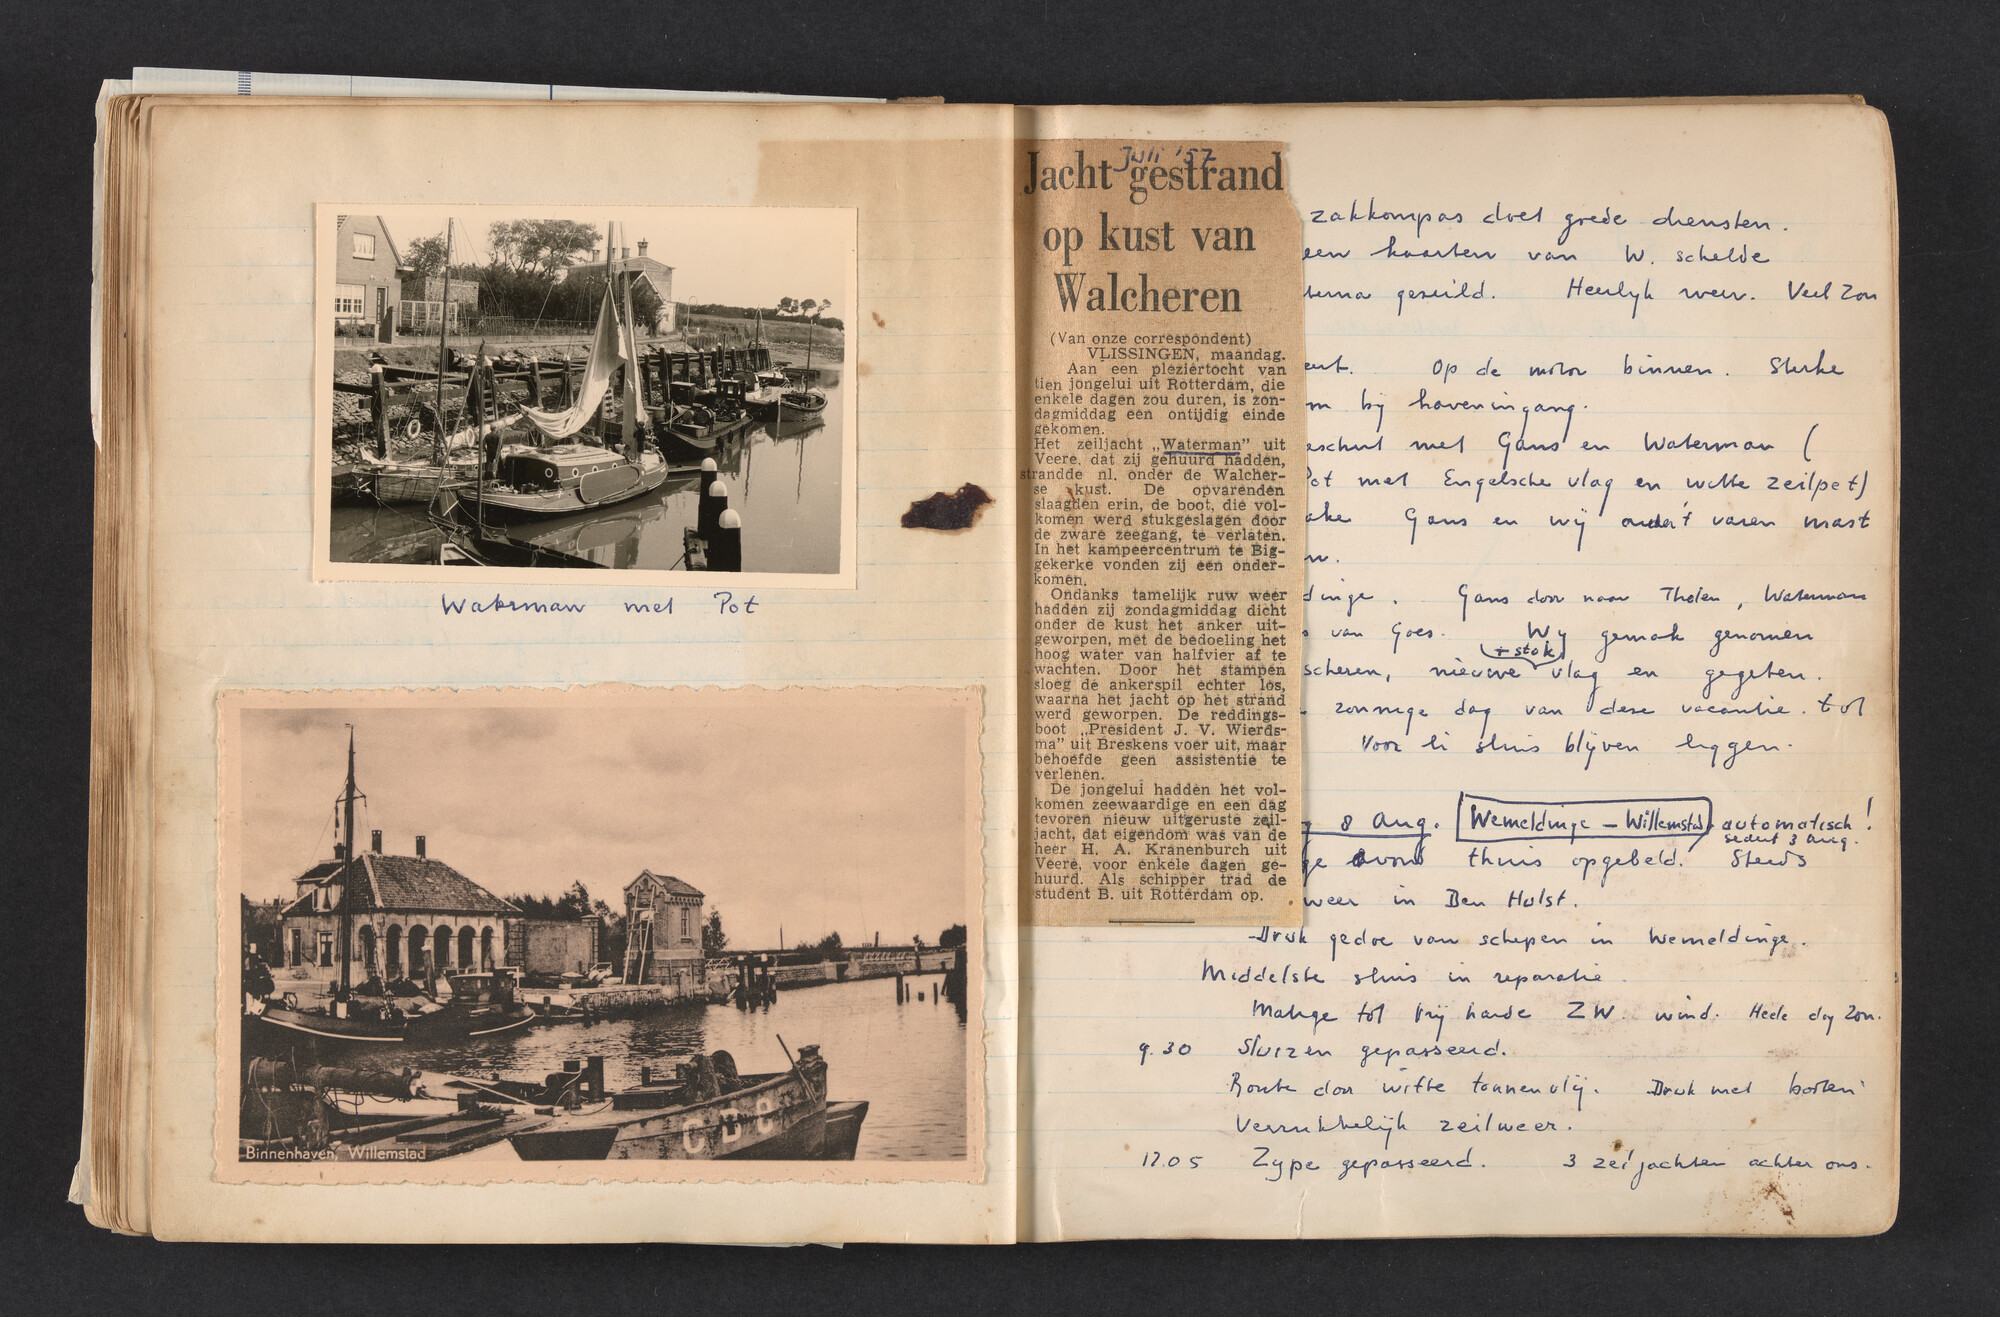 Waterman met Pot
Binnenhaven, Willemstad
C D 8
Juli '57
Jacht gestrand
op kust van
Walcheren
(Van onze correspondent)
VLISSINGEN, maandag.
Aan een pleziertocht van
tien jongelui uit Rotterdam, die
enkele dagen zou duren, is zon-
dagmiddag een ontijdig einde
gekomen.
Het zeiljacht „Waterman” uit
Veere, dat zij gehuurd hadden,
strandde nl. onder de Walcher-
se kust. De opvarenden
slaagden erin, de boot, die vol-
komen werd stukgeslagen door
de zware zeegang, te verlaten.
In het kampeercentrum te Big-
gekerke vonden zij een onder-
komen.
Ondanks tamelijk ruw weer
hadden zij zondagmiddag dicht
onder de kust het anker uit-
geworpen, met de bedoeling het
hoog water van halfvier af te
wachten. Door het stampen
sloeg de ankerspil echter los,
waarna het jacht op het strand
werd geworpen. De reddings-
boot „President J. V. Wierds-
ma” uit Breskens voer uit, maar
behoefde geen assistentie te
verlenen.
De jongelui hadden het vol-
komen zeewaardige en een dag
tevoren nieuw uitgeruste zeil-
jacht, dat eigendom was van de
heer H. A. Kranenburch uit
Veere, voor enkele dagen ge-
huurd. Als schipper trad de
student B. uit Rotterdam op.
zakkompas doet goede diensten.
een kaarten van W. schelde
gezeild. Heerlijk weer. Veel zon
Op de motor binnen. Sterke
bij haveningang.
met Gans en Waterman (
Pot met Engelsche vlag en witte zeilpet)
Gans en wij varen mast
Gans door naar Tholen, Waterman
van Goes. Wij gemak genomen
+ stok
scheren, nieuwe vlag en gegeten.
zonnige dag van deze vacantie. tot
Voor li sluis blijven liggen.
8 Aug. Wemeldinge – Willemstad automatisch!
sedert 3 aug.
avond thuis opgebeld. Steeds
weer in Den Hulst.
Druk gedoe van schepen in Wemeldinge.
Middelste sluis in reparatie.
Matige tot vrij harde ZW. wind. Heele dag zon.
9.30 Sluizen gepasseerd.
Route door witte tonnenvlij. Druk met boten
Verrukkelijk zeilweer.
12.05 Zype gepasseerd. 3 zeiljachten achter ons.